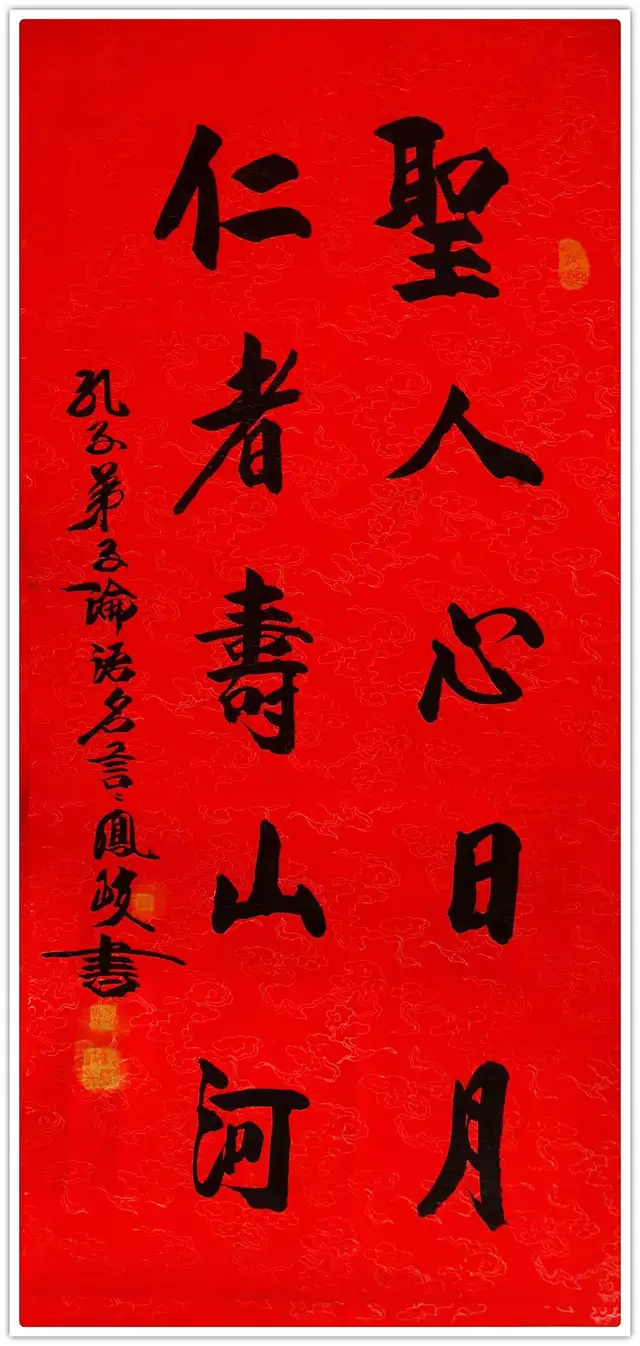 聖人心日月
仁者壽山河
孔子弟子論语名言鳳岐書